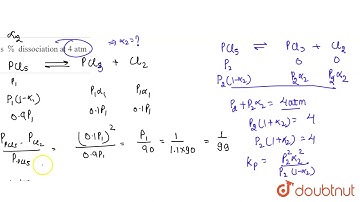 α₂
s % dissociation at 4 atm ⇒ α₂ = ?
PCl₅ ⇌ PCl₃ + Cl₂
P₁
P₁(1-α₁) P₁α₁ P₁α₁
0.9P₁ 0.1P₁ 0.1P₁
P_PCl₃ · P_Cl₂ / P_PCl₅ = (0.1P₁)² / 0.9P₁ = P₁/90 = 1/(1.1×90) = 1/99
PCl₅ ⇌ PCl₃ + Cl₂
P₂ 0 0
P₂(1-α₂) P₂α₂ P₂α₂
P₂ + P₂α₂ = 4atm
P₂(1+α₂) = 4
P₂(1+α₂) = 4
Kp = P₂²α₂² / P₂(1-α₂)
doubtnut